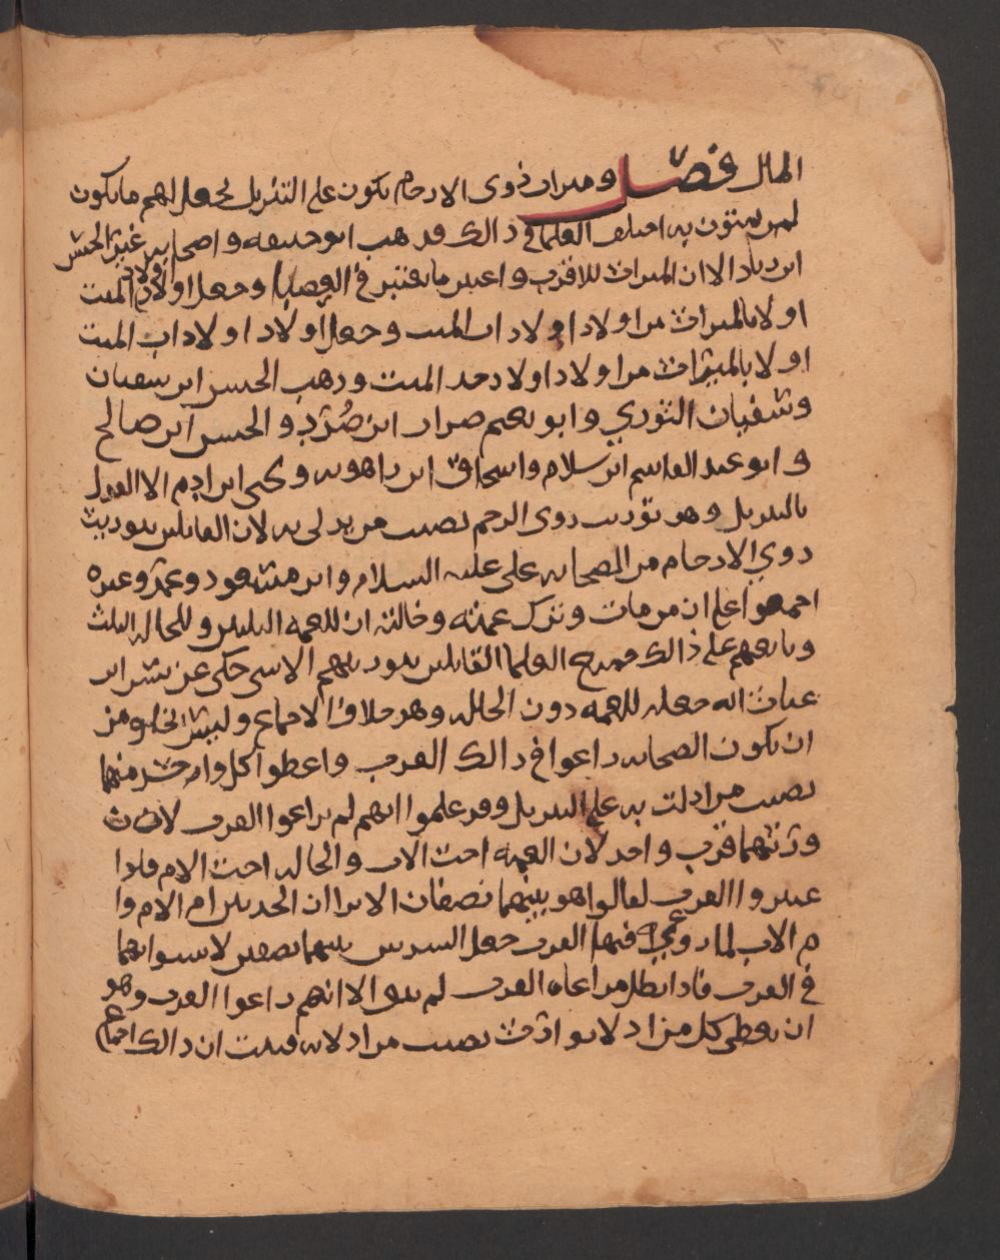 المال فصل وميراث ذوي الارحام يكون على التنزيل يجعل لهم ما يكون
لمن يمتون به اختلف العلما في ذالك فذهب ابو حنيفه واصحابه غير الحسن
ابن زياد الا ان الميراث للاقرب واعتبر ما يعتبر في العصبات وجعل اولاد الميت
اولا بالميراث من اولاد اولاد اب الميت وجعل اولاد اولاد اب الميت
اولا بالميراث من اولاد اولاد جد الميت وذهب الحسن ابن سفيان
وسفيان الثوري وابو نعيم ضرار ابن صُرَد والحسن ابن صالح
وابو عبد القاسم ابن سلام واسحاق ابن راهويه ويحيى ابن ادم الا القول
بالتنزيل وهو توريث ذوي الرحم نصيب من يدلى به لان القايلين بتوريث
ذوي الارحام من الصحابه على عليه السلام وابن مسعود وعمر وغيره
اجمعوا على ان من مات وترك عمته وخالته ان للعمه الثلثين وللخاله الثلث
وتابعهم على ذالك جميع العلما القايلين بتوريثهم الا شي حكي عن بشر ابن
غياث انه جعله للعمه دون الخاله وهو خلاف الاجماع وليس يخلو من
ان يكون الصحابه راعوا في ذالك القرب واعطوا كل واحد منهما
نصيب من ادلت به على التنزيل وقد علموا انهم لم يراعوا القرب لان
ورثتهما قرب واحد لان العمه اخت الاب والخاله اخت الام فلوا
عتبروا القرب لقالوا هو بينهما نصفان الا ترا ان الجدتين ام الام وا
م الاب لما روعي فيها القرب جعل السدس بينهما نصفين لاستوايهما
في القرب فاذا بطل مراعاه القرب لم يبق الا انهم راعوا القرب وهو
ان يعطى كل من ادلا بوارث نصيب من ادلا به فثبت ان ذالك اجماع